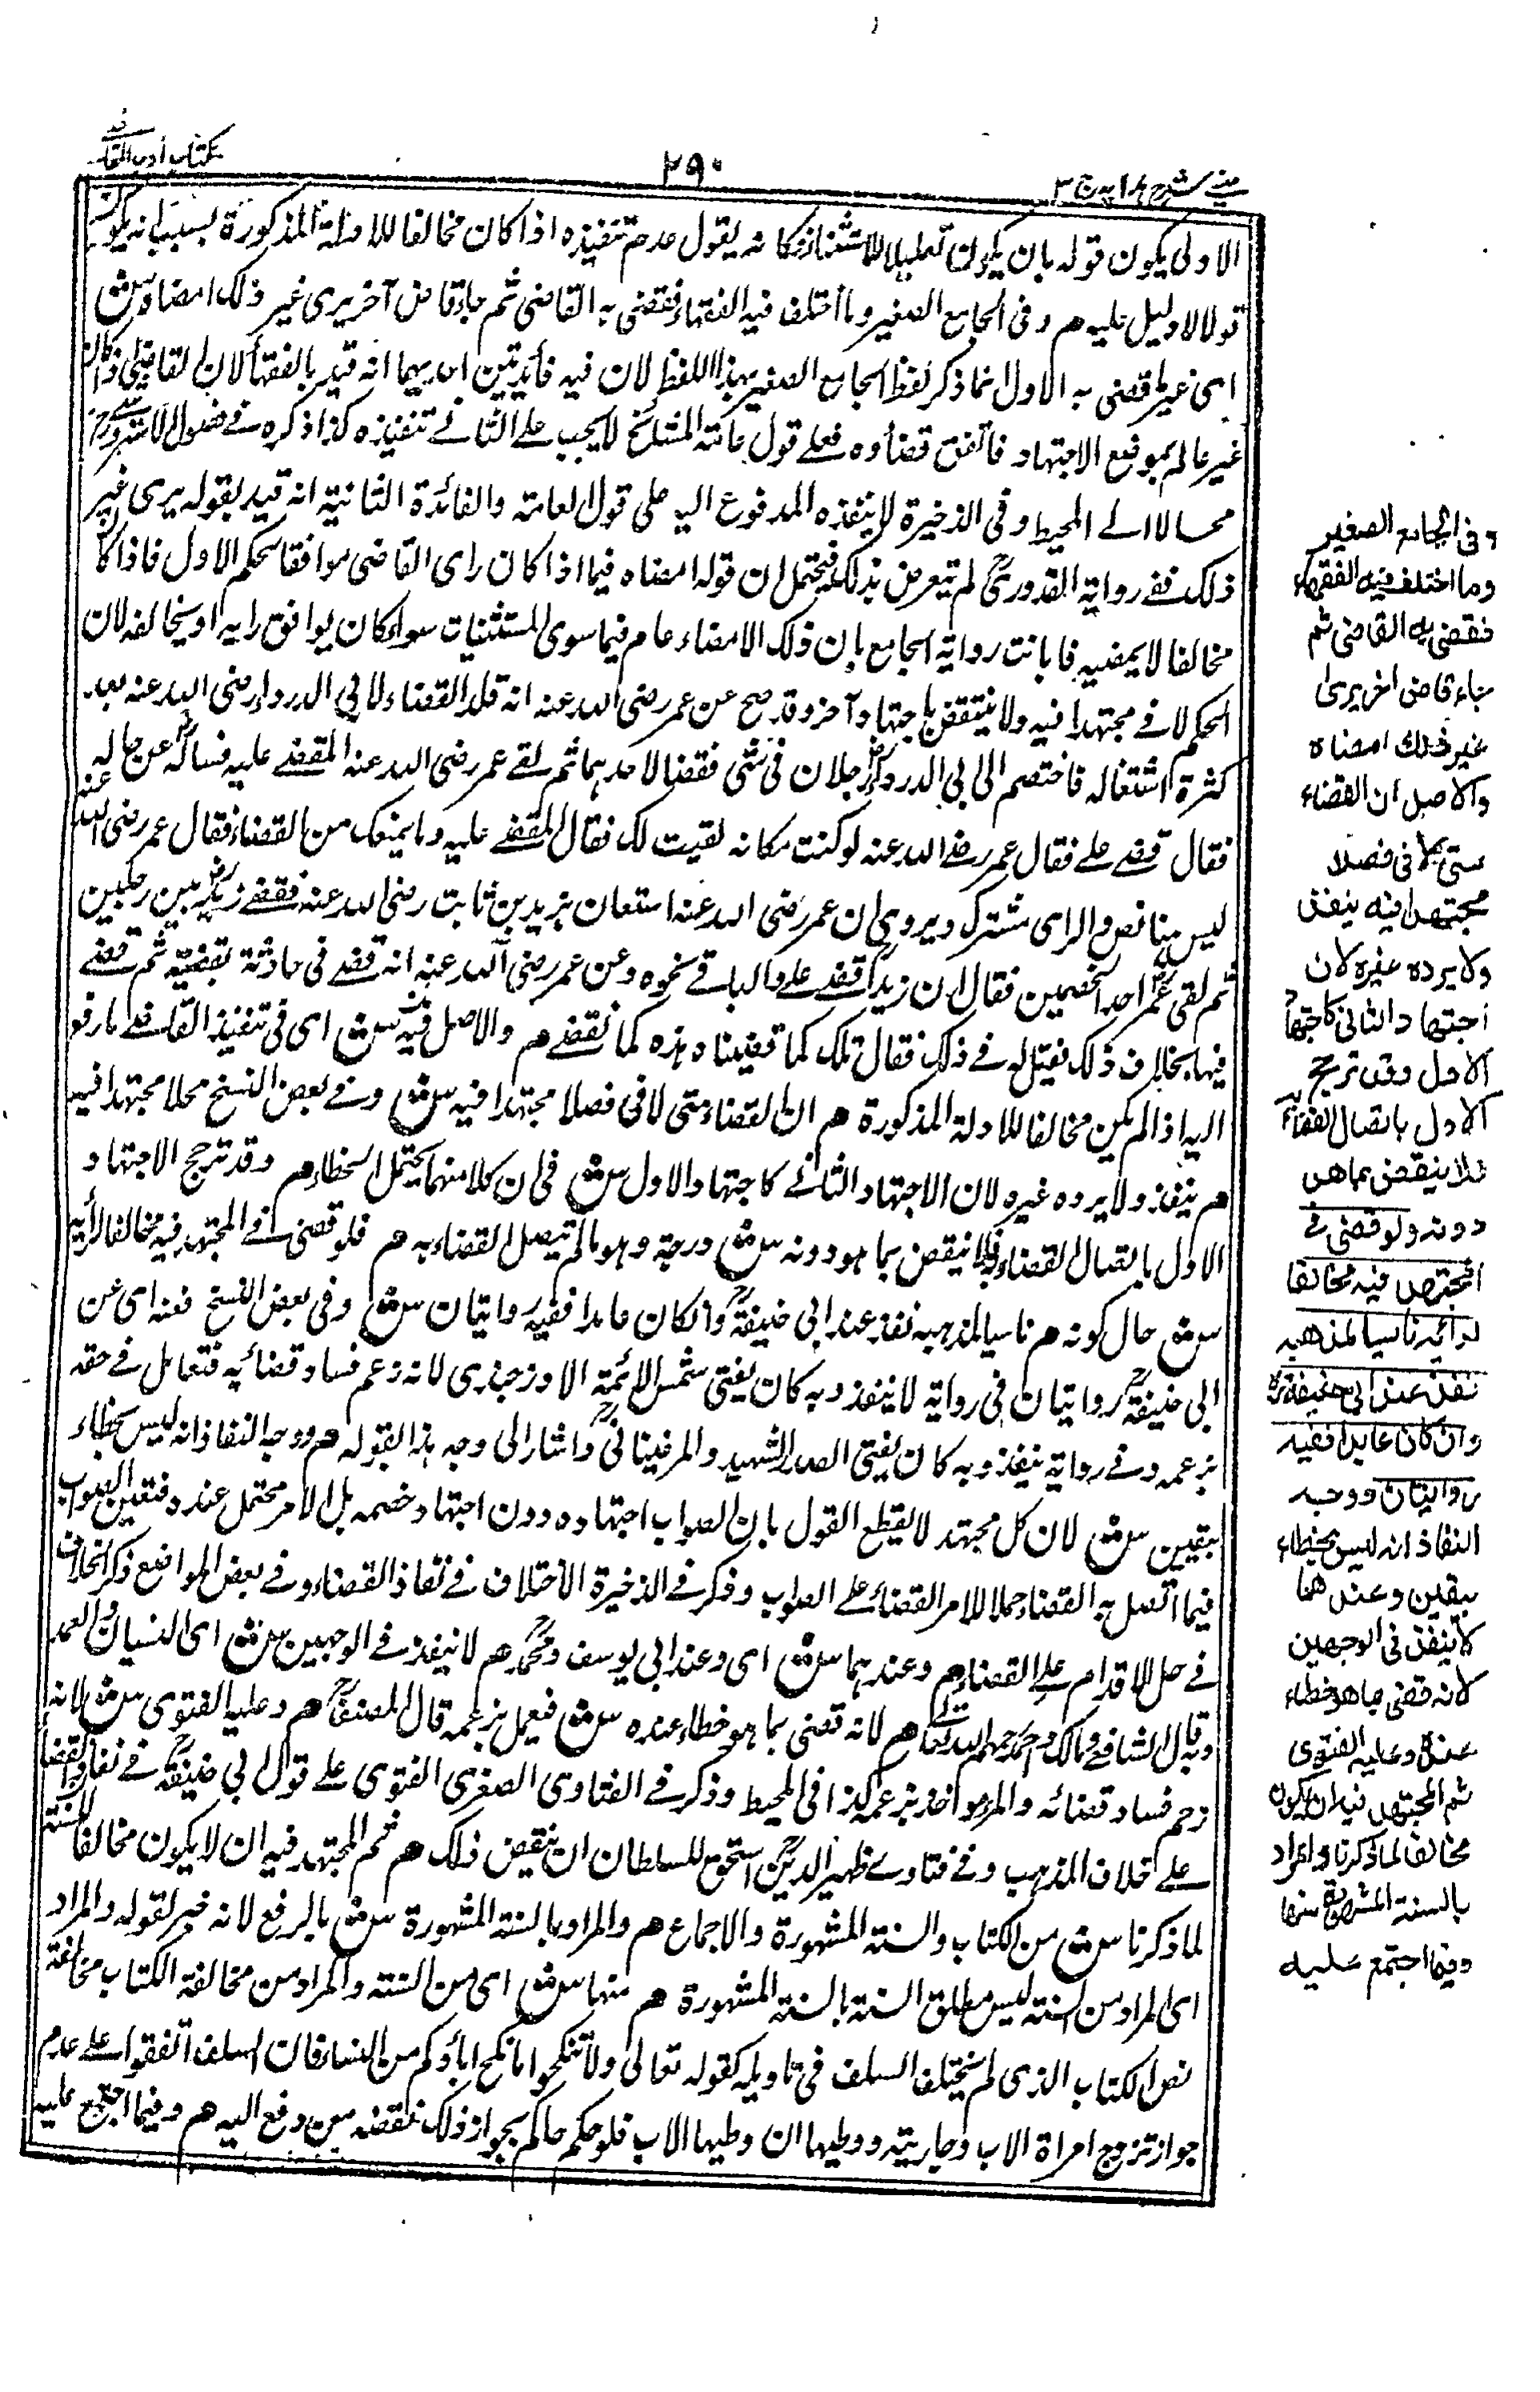 عينى شرح هدايه ج ٣
٢٩٠
كتاب أدب القاضے
الاولى يكون قوله بان يكون تعليلا للاستثناء فكانه يقول عدم تنفيذه اذا كان مخالفا للادلة المذكورة بسبب انه يكون
قولا لا دليل عليه هم وفى الجامع الصغير وما أختلف فيه الفقهاء فقضى به القاضى ثم جاء قاض آخر يرى غير ذلك امضاه ش
اى غير ما قضى به الاول انما ذكر لفظ الجامع الصغير بهذا اللفظ لان فيه فأيدتين احديهما انه قيد بالفقهاء لان القاضى اذا كان
غير عالم بموقع الاجتهاد فاتفق قضاؤه فعلے قول عامة المشائخ لا يجب علے الثانے تنفيذه كذا ذكره فے فصول الاستروشنے رح
محالا الے المحيط وفى الذخيرة لا ينفذه المدفوع اليه على قول العامة والفائدة الثانية انه قيد بقوله يرى غير
ذلك ففے رواية القدورى رح لم يتعرض بذلك فيحتمل ان قوله امضاه فيما اذا كان راى القاضى موافقا لحكم الاول فاذا كان
مخالفا لا يمضيه فابانت رواية الجامع بان ذلك الامضاء عام فيما سوى المستثنيات سواء كان يوافق رايه او يخالفه لان
الحكم لاقے مجتهدا فيه ولا ينتقض باجتهاد آخر وقد صح عن عمر رضى الله عنه انه قلد القضاء لابى الدرداء رضى الله عنه بعد
كثرة اشتغاله فاختصم الى ابى الدرداء رض رجلان فى شئ فقضا لاحدهما ثم لقے عمر رضى الله عنه المقضے عليه فساله عن حاله
فقال قضے على فقال عمر رضے الله عنه لو كنت مكانه لقيت لك فقال المقضے عليه وما يمنعك من القضاء فقال عمر رضى الله عنه
ليس هنا نص والراى مشترك ويروى ان عمر رضى الله عنه استعان بزيد بن ثابت رضى الله عنه فقضے زيد رض بين رجلين
ثم لقى عمر رض احد الخصمين فقال ان زيدا قضے علے والباقے نحوه وعن عمر رضى الله عنه انه قضے فى حادثة بقضية ثم قضے
فيها بخلاف ذلك فقيل له فے ذلك فقال تلك كما قضينا وهذه كما نقضے هم والاصل فيه ش اى فى تنفيذ القاضے ما رفع
اليه اذا لم يكن مخالفا للادلة المذكورة هم ان القضاء متى لاقى فصلا مجتهدا فيه ش وفے بعض النسخ محلا مجتهدا فيه
هم ينفذ ولا يرده غيره لان الاجتهاد الثانے كاجتهاد الاول ش فى ان كلا منهما يحتمل الخطاء هم وقد ترجح الاجتهاد
الاول باتصال القضاء به فلا ينقض بما هو دونه ش درجة وهو ما لم يتصل القضاء به هم فلو قضى فے المجتهد فيه مخالفا لرأيه
ش حال كونه هم ناسيا لمذهبه نفذ عند ابى حنيفة رح وانكان عامدا ففيه روايتان ش وفى بعض النسخ فعنه اى عن
ابى حنيفة رح روايتان فى رواية لا ينفذ وبه كان يفتى شمس الائمة الاوزجندى لانه زعم فساد قضائه فتعامل فے حقه
بزعمه وفے رواية ينفذ وبه كان يفتى الصدر الشهيد والمرغينانى رح واشار الى وجه هذا لقوله هم ووجه النفاذ انه ليس بخطاء
بيقين ش لان كل مجتهد لا يقطع القول بان الصواب اجتهاده دون اجتهاد خصمه بل الامر محتمل عنده فتعين الصواب
فيما اتصل به القضاء حملا للامر القضاء علے الصواب وذكر فے الذخيرة الاختلاف فے نفاذ القضاء وفے بعض المواضع ذكر الخلاف
فے حل الاقدام علے القضاء هم وعندهما ش اى وعند ابى يوسف ومحمد رح هم لا ينفذ فے الوجهين ش اى النسيان والعمد
وبه قال الشافعے ومالك واحمد رحمهم الله تعالے هم لانه قضى بما هو خطاء عنده ش فيعمل بزعمه قال المصنف رح هم وعليه الفتوى ش لانه
زعم فساد قضائه والمرء مواخذ بزعمه كذا فى المحيط وذكر فے الفتاوى الصغرى الفتوى علے قول ابى حنيفة رح فے نفاذ القضاء
علے خلاف المذهب وفے فتاوے ظهير الدين رح استحق للسلطان ان ينقض ذلك هم ثم المجتهد فيه ان لا يكون مخالفا
لما ذكرنا ش من الكتاب والسنة المشهورة والاجماع هم والمراد بالسنة المشهورة ش بالرفع لانه خبر لقوله والمراد
اى المراد من السنة ليس مطلق السنة بالسنة المشهورة هم منها ش اى من السنة والمراد من مخالفة الكتاب مخالفة
نص الكتاب الذى لم يختلف السلف فى تاويله كقوله تعالى ولا تنكحوا ما نكح اباؤكم من النساء فان السلف اتفقوا علے عدم
جواز تزوج امراة الاب وجاريته ووطيها ان وطيها الاب فلو حكم حاكم بجواز ذلك نقضه من رفع اليه هم وفيما اجتمع عليه
وفى الجامع الصغير
وما اختلف فيه الفقهاء
فقضى به القاضى ثم
جاء قاض اخر يرى
غير ذلك امضاه
والاصل ان القضاء
متى لاقى فصلا
مجتهدا فيه ينفذ
ولا يرده غيره لان
اجتهاد الثانى كاجتهاد
الاول وقد ترجح
الاول باتصال القضاء به
فلا ينقض بما هو
دونه ولو قضى فے
المجتهد فيه مخالفا
لرائيه ناسيا لمذهبه
نفذ عند ابى حنيفة رح
وان كان عامدا ففيه
روايتان ووجه
النفاذ انه ليس بخطاء
بيقين وعندهما
لا ينفذ فى الوجهين
لانه قضى بما هو خطاء
عنده وعليه الفتوى
ثم المجتهد فيه ان لا يكون
مخالفا لما ذكرنا والمراد
بالسنة المشهورة منها
وفيما اجتمع عليه